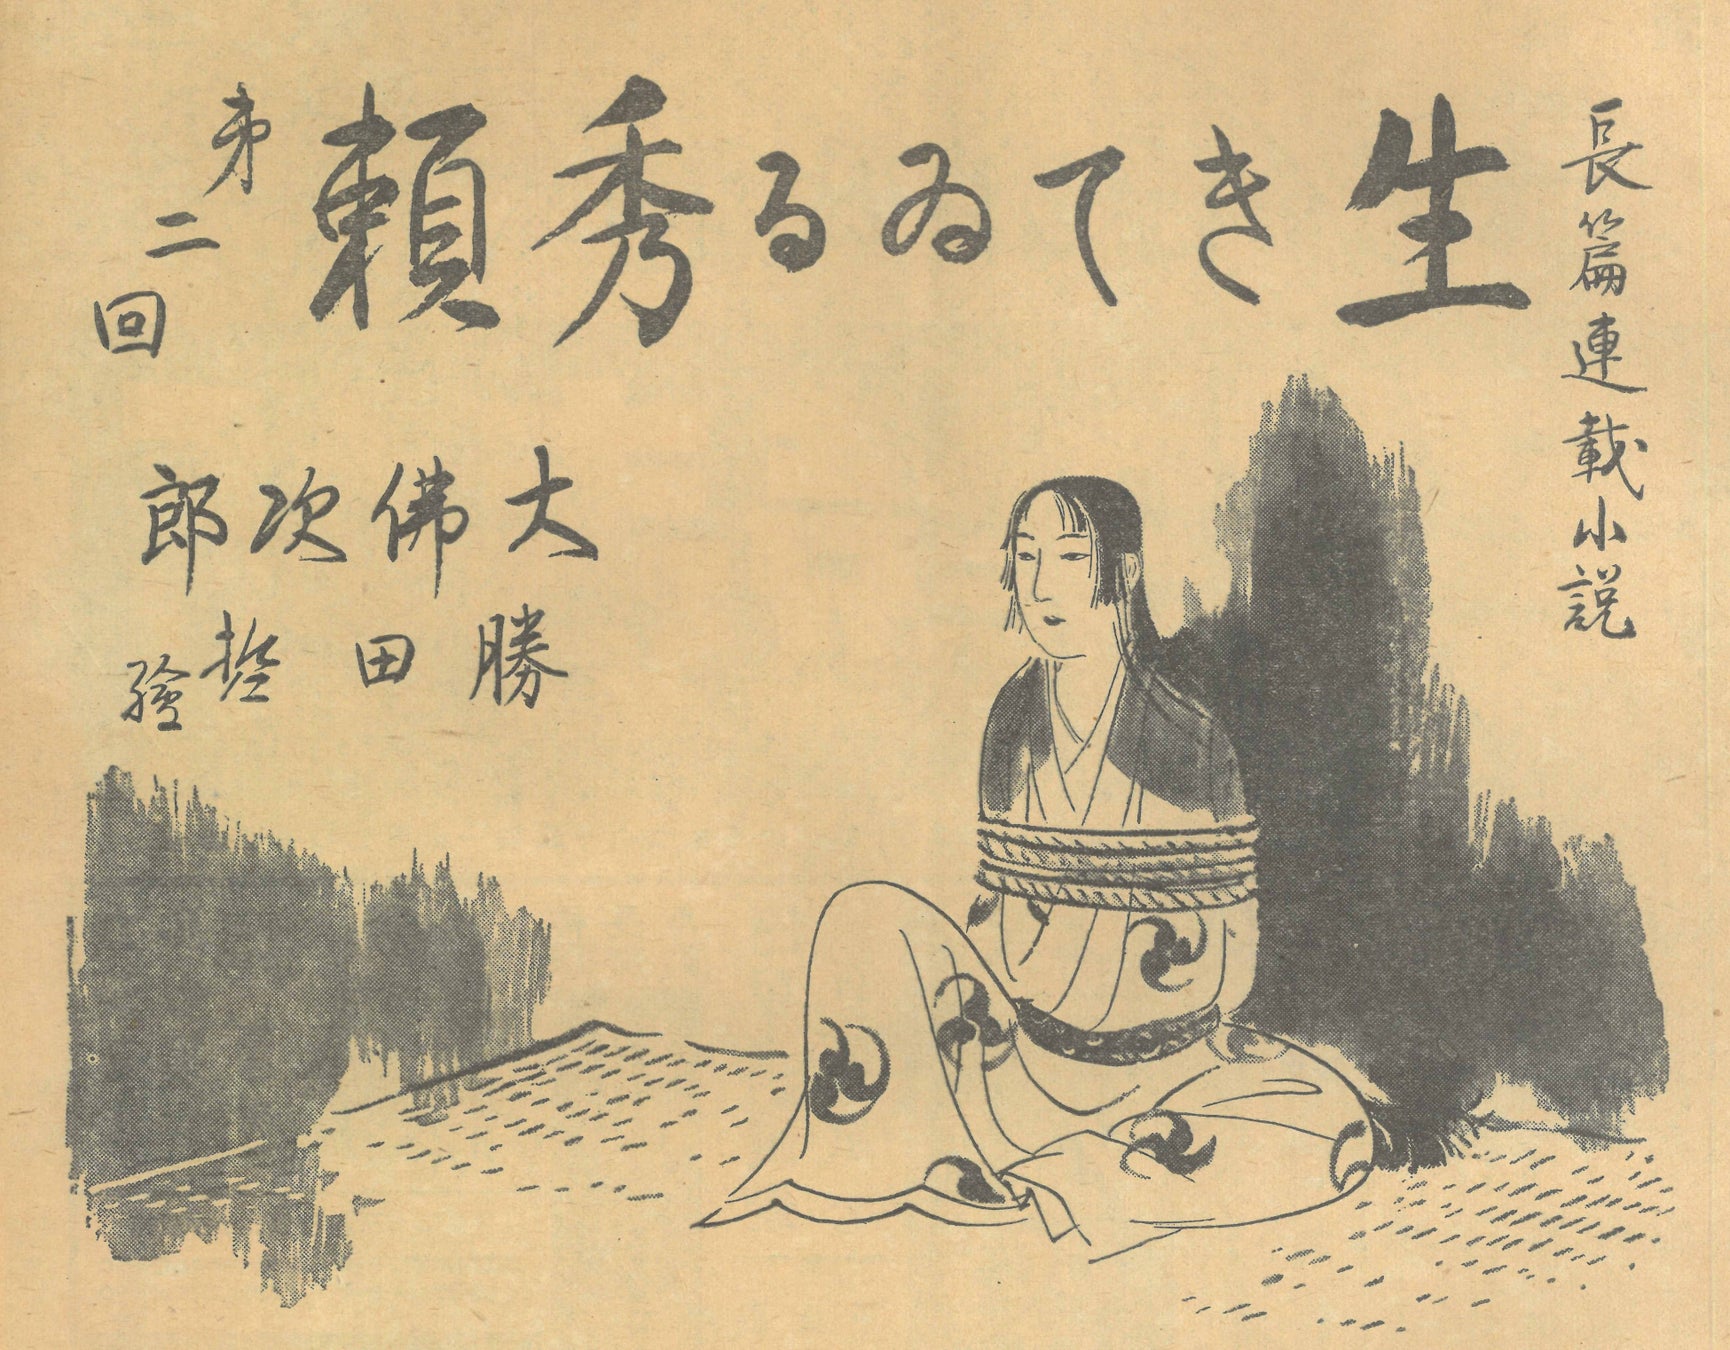 長篇連載小説
生きてゐる秀頼
第二回
大佛次郎
勝田哲繪